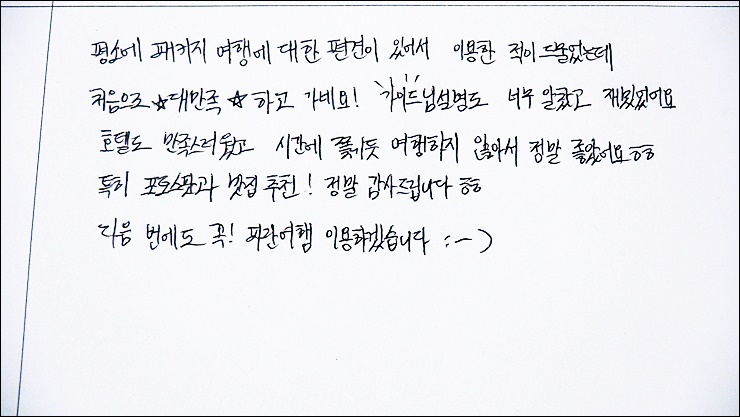 평소에 패키지 여행에 대한 편견이 있어서 이용한 적이 드물었는데
처음으로 ☆대만족☆ 하고 가네요! 가이드님설명도 너무 알찼고 재밌었어요
호텔도 만족스러웠고 시간에 쫓기듯 여행하지 않아서 정말 좋았어요ㅎㅎ
특히 포토스팟과 맛집 추천! 정말 감사드립니다 ㅎㅎ
다음 번에도 꼭! 파란여행 이용하겠습니다 :-)